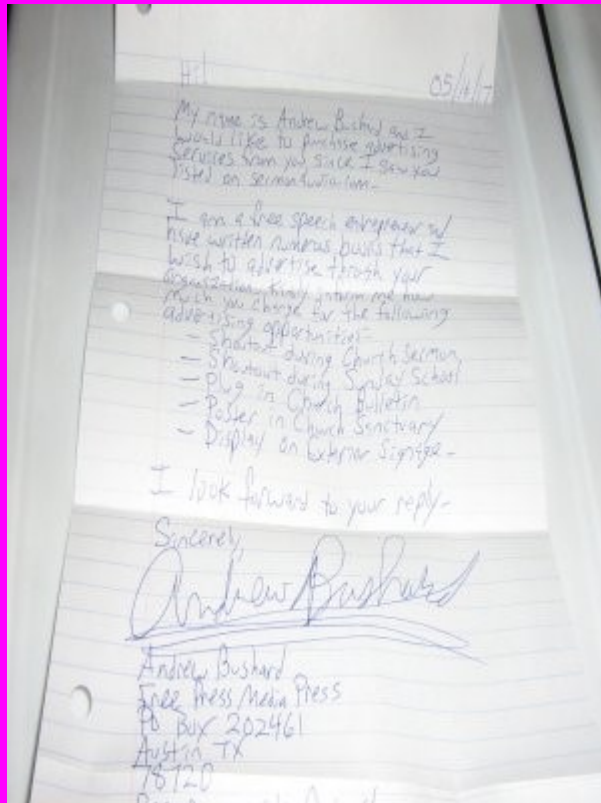 Hi!
05/16/17
My name is Andrew Bushard and I
would like to purchase advertising
services from you since I saw you
listed on sermonaudio.com.
I am a free speech entrepreneur and
have written numerous books that I
wish to advertise through your
organization. Kindly inform me how
much you charge for the following
advertising opportunities-
- Shoutout during Church Sermon
- Shoutout during Sunday School
- Plug in Church Bulletin
- Poster in Church Sanctuary
- Display on Exterior Signage-
I look forward to your reply-
Sincerely,
Andrew Bushard
Andrew Bushard
Free Press Media Press
PO Box 202461
Austin TX
78720